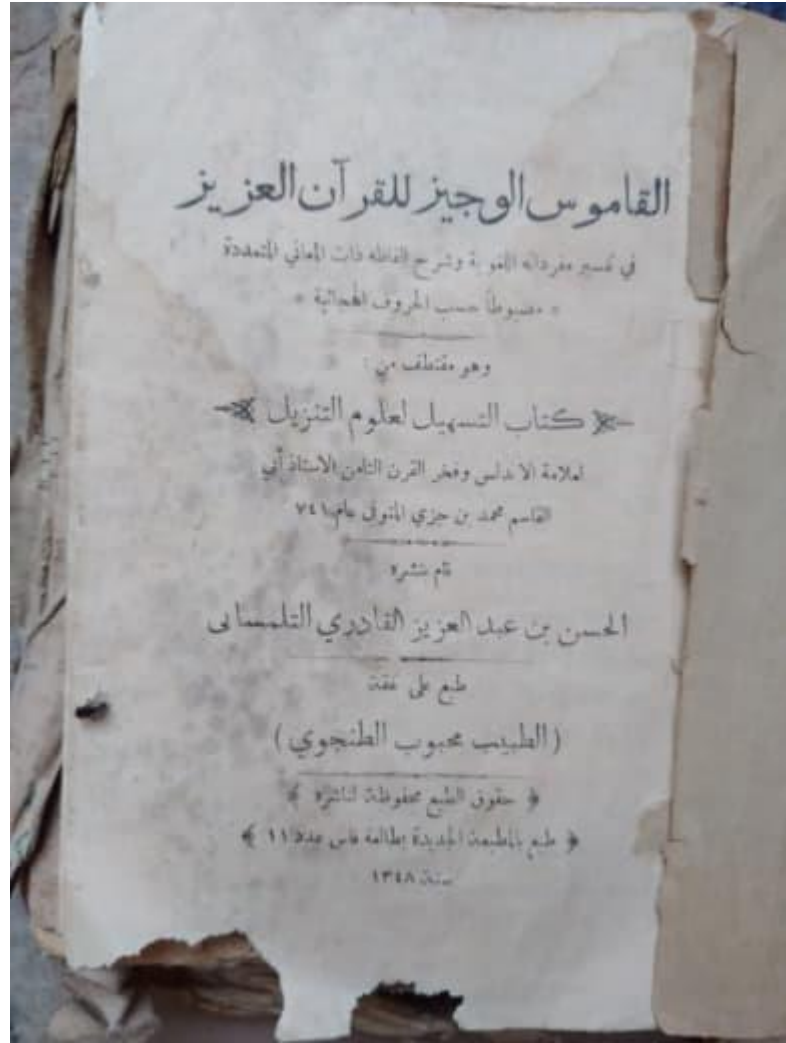 القاموس الوجيز للقرآن العزيز
في تفسير مفرداته اللغوية وشرح الفاظه ذات المعاني المتعددة
* مضبوطاً حسب الحروف الهجائية *
وهو مقتطف من :
كتاب التسهيل لعلوم التنزيل
لعلامة الاندلس وفخر القرن الثامن الاستاذ أبي
القاسم محمد بن جزي المتوفى عام ٧٤١
قام بنشره
الحسن بن عبد العزيز القادري التلمسانى
طبع على نفقة
(الطبيب محبوب الطنجوي)
﴿ حقوق الطبع محفوظة لناشره ﴾
﴿ طبع بالمطبعة الجديدة بطالعة فاس عدد ١١ ﴾
سنة ١٣٤٨